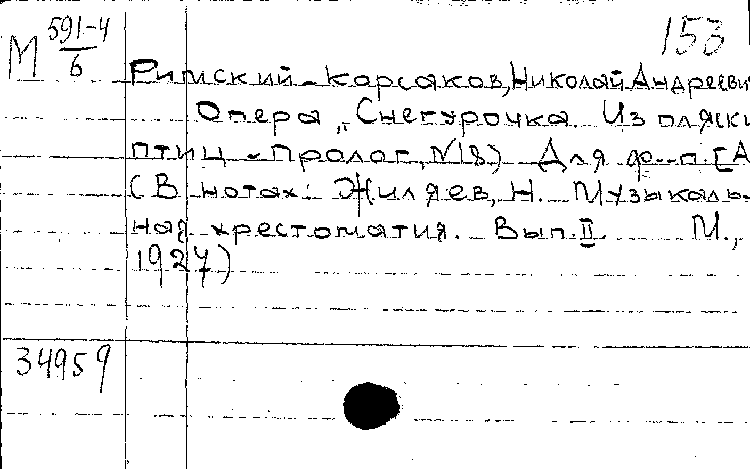 153
М 591-4/6
Римский-Корсаков, Николай Андреевич
Опера „Снегурочка. Из пляски
птиц - Пролог, №18) Для ф.-п. [А
(В нотах: Жиляев, Н. Музыкаль-
ная хрестоматия. Вып. II М.,
1927)
34959